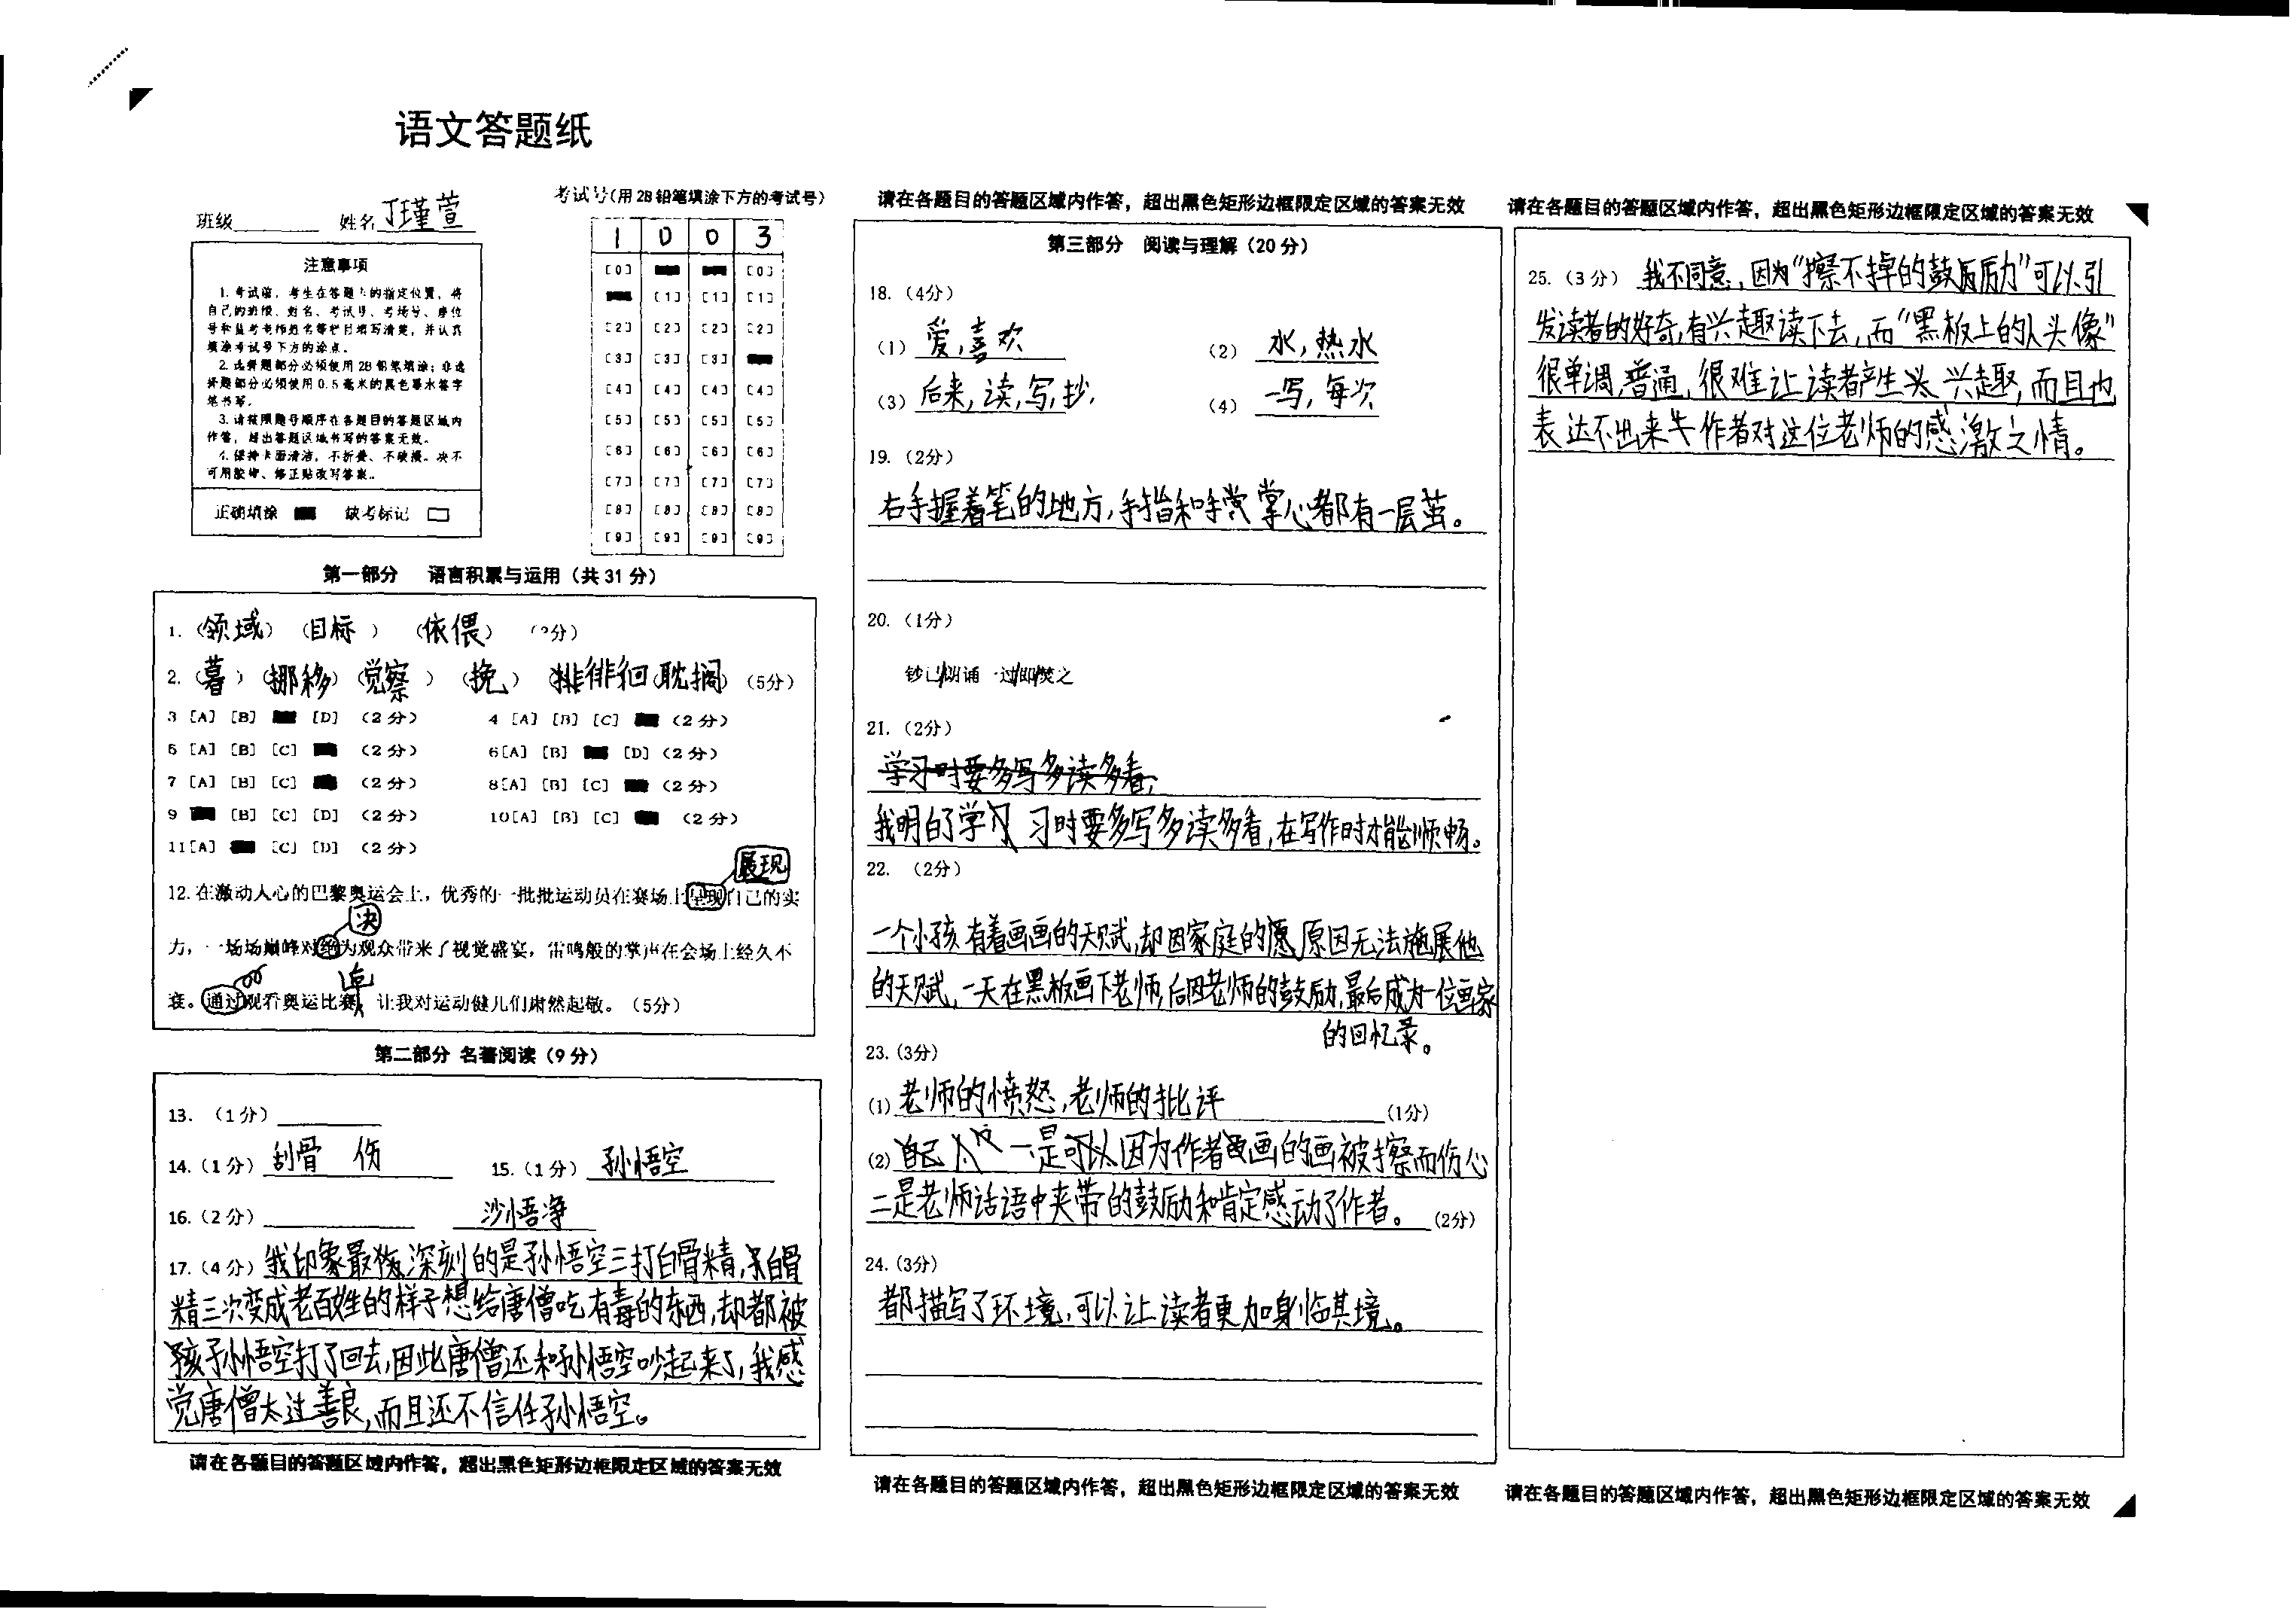 语文答题纸
班级 姓名 丁瑾萱
考试号(用2B铅笔填涂下方的考试号)
1 0 0 3
注意事项
1. 考试前，考生在答题卡的指定位置，将
自己的班级、姓名、考试号、考场号、座位
号和监考老师姓名等栏目填写清楚，并认真
填涂考试号下方的涂点。
2. 选择题部分必须使用2B铅笔填涂；非选
择题部分必须使用0.5毫米的黑色墨水签字
笔书写。
3. 请按照题号顺序在各题目的答题区域内
作答，超出答题区域书写的答案无效。
4. 保持卡面清洁，不折叠、不破损。决不
可用胶带、修正贴改写答案。
正确填涂 缺考标记
[0] [0]
[1] [1] [1]
[2] [2] [2] [2]
[3] [3] [3]
[4] [4] [4] [4]
[5] [5] [5] [5]
[6] [6] [6] [6]
[7] [7] [7] [7]
[8] [8] [8] [8]
[9] [9] [9] [9]
第一部分 语言积累与运用（共31分）
1.（领域）（目标）（依偎）
2.（暮）（挪移）（觉察）（挽）（徘徊）（耽搁）（5分）
3 [A] [B] [D] （2分） 4 [A] [B] [C] （2分）
5 [A] [B] [C] （2分） 6[A] [B] [D]（2分）
7 [A] [B] [C] （2分） 8[A] [B] [C] （2分）
9 [B] [C] [D] （2分） 10[A] [B] [C] （2分）
11[A] [C] [D] （2分）
展现
12.在激动人心的巴黎奥运会上，优秀的一批批运动员在赛场上呈现自己的实
决
力，一场场巅峰对绝为观众带来了视觉盛宴，雷鸣般的掌声在会场上经久不
衰。通过观看奥运比赛，让我对运动健儿们肃然起敬。（5分）
第二部分 名著阅读（9分）
13.（1分）
14.（1分）刮骨 伤 15.（1分）孙悟空
16.（2分） 沙悟净
17.（4分）我印象最深刻的是孙悟空三打白骨精，白骨
精三次变成老百姓的样子想给唐僧吃有毒的东西，却都被
孙悟空打了回去，因此唐僧还和孙悟空吵起来了，我感
觉唐僧太过善良，而且还不信任孙悟空。
请在各题目的答题区域内作答，超出黑色矩形边框限定区域的答案无效
请在各题目的答题区域内作答，超出黑色矩形边框限定区域的答案无效
第三部分 阅读与理解（20分）
18.（4分）
（1）爱，喜欢 （2）水，热水
（3）后来，读，写，抄， （4）一写，每次
19.（2分）
右手握着笔的地方，手指和掌心都有一层茧。
20.（1分）
钞已朗诵一过即焚之
21.（2分）
学习时要多写多读多看，
我明白了学习时要多写多读多看，在写作时才能顺畅。
22. （2分）
一个小孩有着画画的天赋，却因家庭的原因无法施展他
的天赋，一天在黑板画下老师，后因老师的鼓励，最后成为一位画家
的回忆录。
23.（3分）
（1）老师的愤怒，老师的批评 （1分）
（2）一是因为作者画的画被擦而伤心
二是老师话语中夹带的鼓励和肯定感动了作者。（2分）
24.（3分）
都描写了环境，可以让读者更加身临其境。
请在各题目的答题区域内作答，超出黑色矩形边框限定区域的答案无效
请在各题目的答题区域内作答，超出黑色矩形边框限定区域的答案无效
25.（3分）我不同意，因为“擦不掉的鼓励”可以引
发读者的好奇，有兴趣读下去，而“黑板上的人头像”
很单调，普通，很难让读者产生兴趣，而且也
表达不出来作者对这位老师的感激之情。
请在各题目的答题区域内作答，超出黑色矩形边框限定区域的答案无效